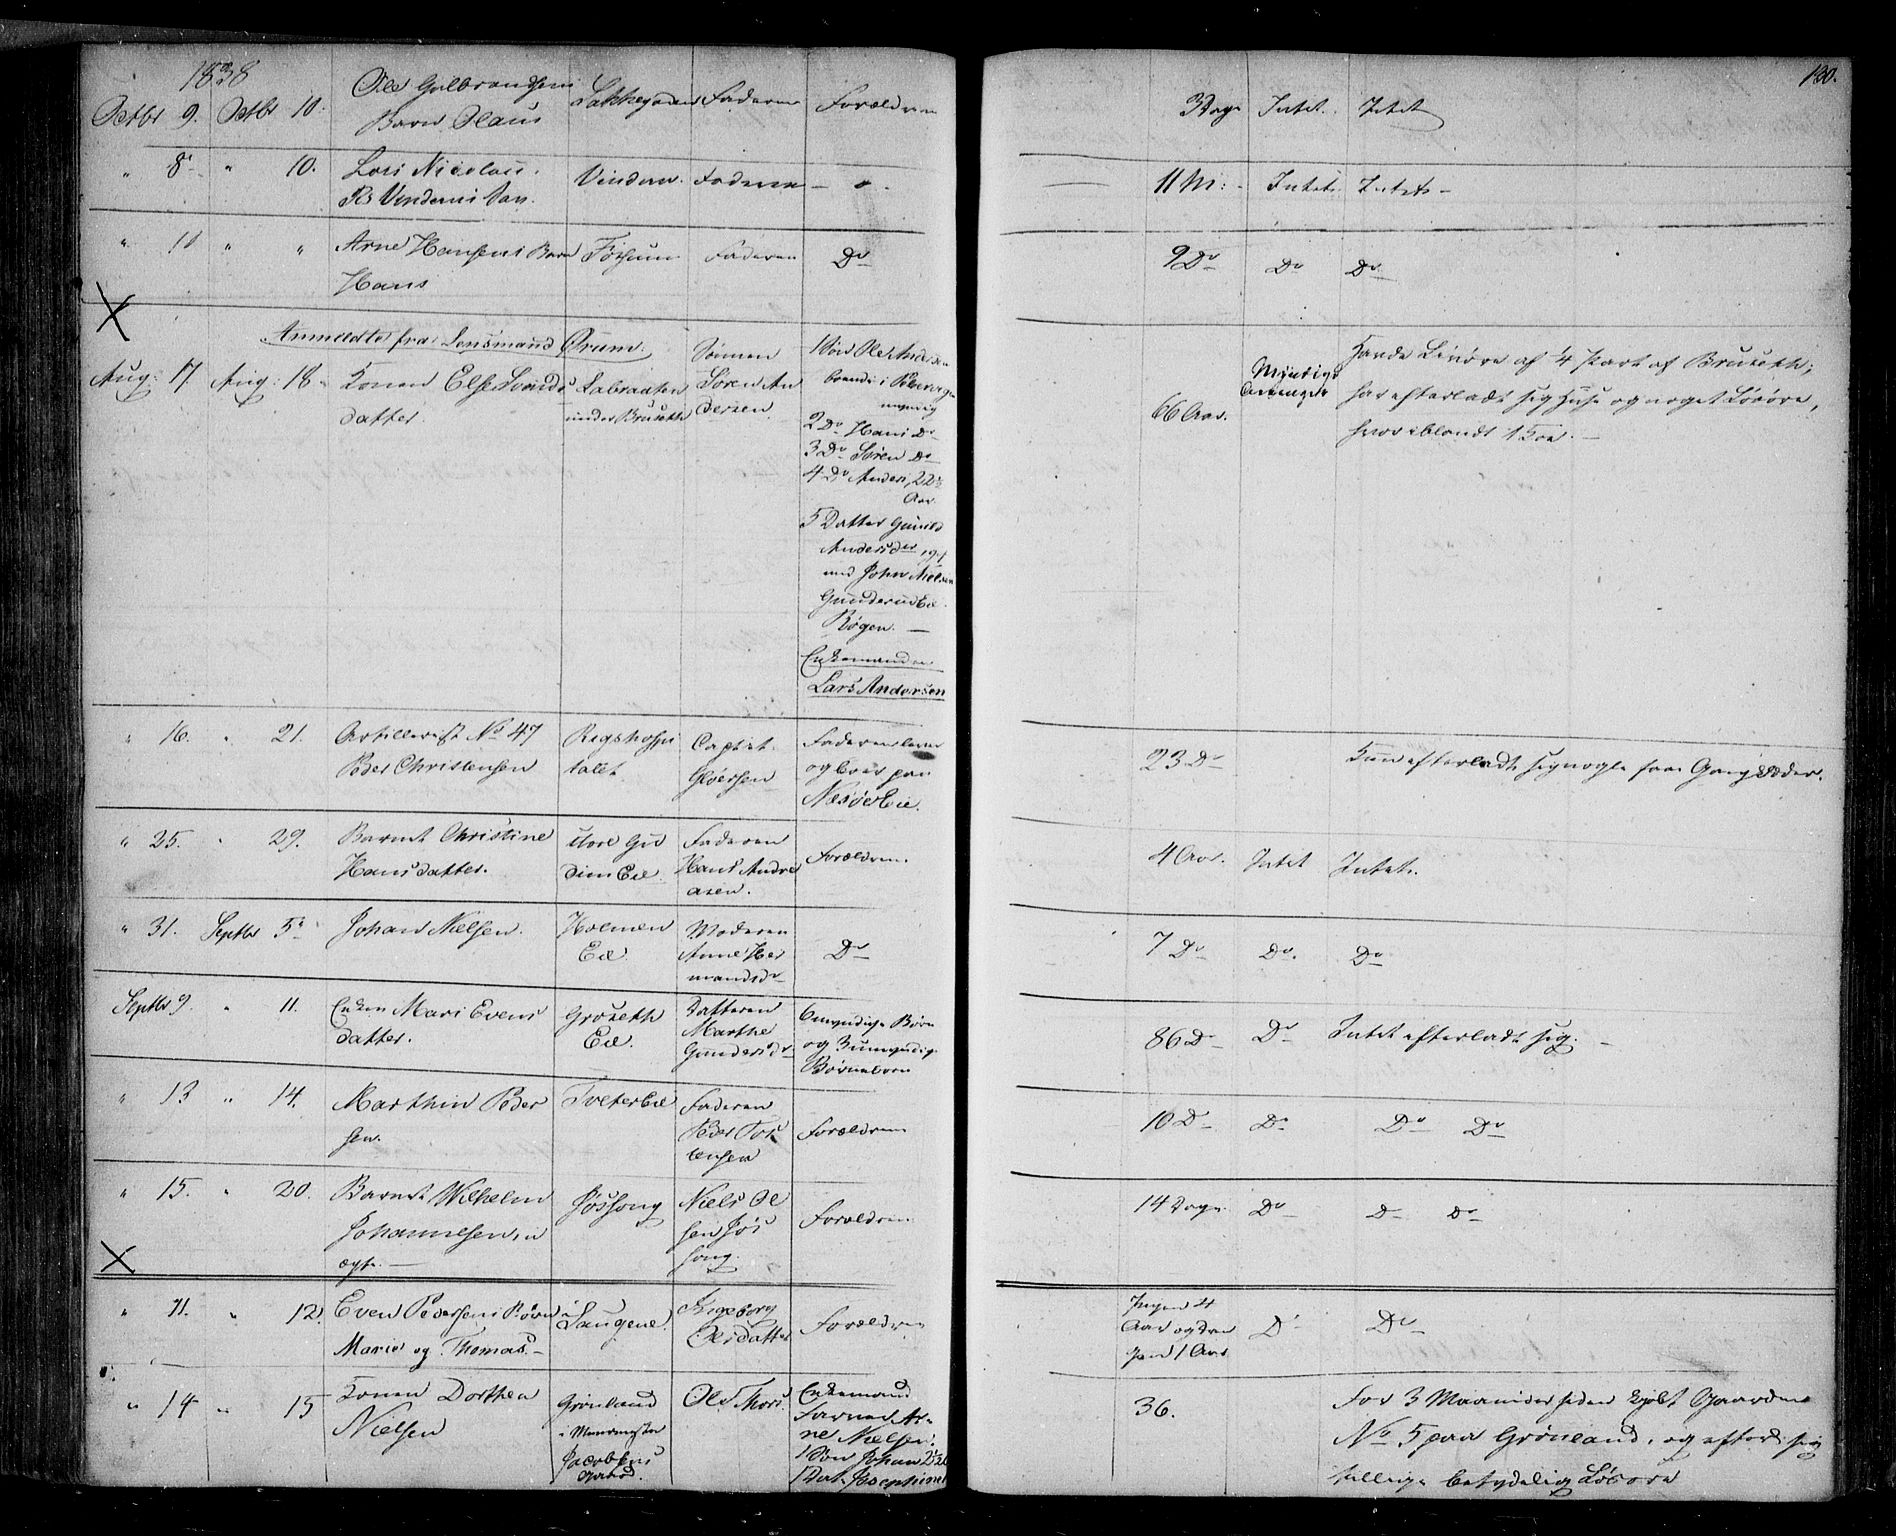 1838
130.
Octbr 9. Octbr 10. Ole Gulbrandsens Lakkegaden Faderen Forældren 3 Dage Intet. Intet
Barn Olaus
" 8 " 10. Lars Nicolai Vindern. Faderen - " - 11 M: Intet Intet -
" 10 " " Arne Hansens Barn Faderen Do 9 Do Do Do
Hans
Anmeldte fra Lensmand Ørum.
Aug: 17. Aug: 18 Konen Else Svends
datter.
Labraaten
under Bruseth
Sønnen
Søren An
dersen.
1 Søn Ole Andersen
boende i Pibervigen
myndig
2 Do Hans Do
3 Do Søren Do
4 Do Anders, 22½
Aar
5 Datter Gunild
Andersdr, gift
med John Nielsen
Gunderud Eie
Røgen. -
Enkemanden
Lars Andersen
66 Aar.
Myndige
Arvinger
Havde Livøre af ¼ Part af Bruseth;
har efterladt sig Huse og noget Løsøre,
hvoriblandt 1 Koe. -
" 16. " 21. Artillerist No 47
Peder Christensen
Rigshospi
talet.
Captat.
Gløersen
Faderen lever
og boer paa
Næsøe Eie.
23 Do
Kun efterladt sig nogle faae Gangklæder.
" 25. " 29. Barnet Christine
Hansdatter.
store
Eie
Faderen
Hans Andre
asen.
Forældren.
4 Aar. Intet Intet.
" 31. Septbr 5 Johan Nielsen.
Holmen
Eie.
Moderen
Anne Her
mandsdr
Do
7 Do Do. Do
Septbr 9. " 11. Enken Mari Evens
datter.
Groseth
Eie.
Datteren
Marthe
Gundersdr
6 myndige Børn
og 3 umyndige
Børnebørn
86 Do Do Intet efterladt sig. -
" 13 " 14. Marthin Peder
sen.
Tveter Eie
Faderen
Peder Tor
Forældren
10 Do Do Do Do
" 15. " 20. Barnet Wilhelm
Johannesen, u
ægte. -
Jøssong
Niels Ol
sen Jøs
song.
Forældren
14 Dage Do Do Do
" 11. " 12. Even Pedersens Børn
Marie og Thomas. -
Laugene.
Ingeborg
Olsdatter
Forældren
Pigen 4
Aar og Dren
gen 1 Aar
Do Do
" 14 " 15 Konen Dorthea
Nielsen
Grønland
Jacobsens
Gaard.
Ole Thors.
Enkemand
Farver Ar-
ne Nielsen.
1 Søn Johan
1 Dat. Josephine
36.
For 3 Maaneder siden kjøbt Gaarden
No 5 paa Grønland, og efterl: sig
tillige betydelig Løsøre